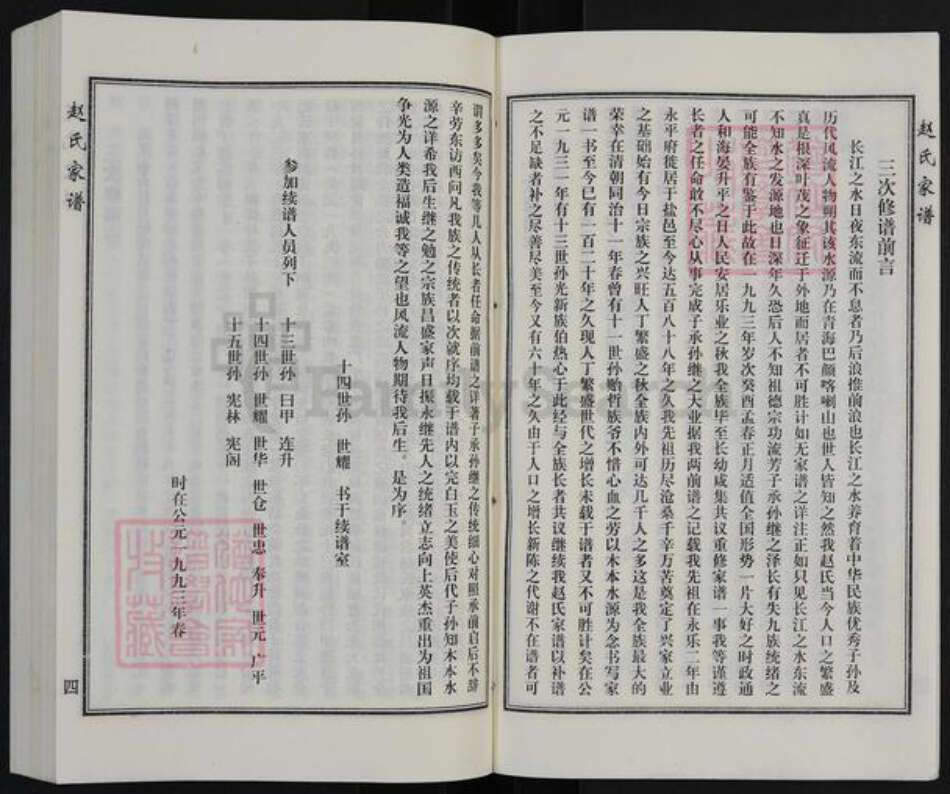 赵氏家谱
三次修谱前言
长江之水日夜东流而不息者乃后浪推前浪也长江之水养育着中华民族优秀子孙及
历代风流人物朔其该水源乃在青海巴颜喀喇山也世人皆知之然我赵氏当今人口之繁盛
真是根深叶茂之象征迁于外地而居者不可胜计如无家谱之详注正如只见长江之水东流
不知水之发源地也日深年久恐后人不知祖德宗功流芳子承孙继之泽长有失九族统绪之
可能全族有鉴于此故在一九九三年岁次癸酉孟春正月适值全国形势一片大好之时政通
人和海晏升平之日人民安居乐业之秋我全族毕至长幼咸集共议重修家谱一事我等谨遵
长者之任命敢不尽心从事完成子承孙继之大业据我两前谱之记载我先祖在永乐二年由
永平府徙居于盐邑至今达五百八十八年之久我先祖历尽沧桑千辛万苦奠定了兴家立业
之基础始有今日宗族之兴旺人丁繁盛之秋全族内外可达几千人之多这是我全族最大的
荣幸在清朝同治十一年春曾有十一世孙贻哲族爷不惜心血之劳以木本水源为念书写家
谱一书至今已有一百二十年之久现人丁繁盛世代之增长未载于谱者又不可胜计矣在公
元一九三一年有十三世孙光新族伯热心于此经与全族长者共议继续我赵氏家谱以补谱
之不足缺者补之尽善尽美至今又有六十年之久由于人口之增长新陈之代谢不在谱者可
谓多多矣今我等几人从长者任命据前谱之详著子承孙继之传统细心对照承前启后不辞
辛劳东访西问凡我族之传统者以次就序均载于谱内以完白玉之美使后代子孙知木本水
源之详希我后生继之勉之宗族昌盛家声日振永继先人之统绪立志向上英杰重出为祖国
争光为人类造福诚我等之望也风流人物期待我后生。是为序。
十四世孙 世耀 书于续谱室
参加续谱人员列下 十三世孙 曰甲 连升
十四世孙 世耀 世华 世仓 世忠 奉升 世元 广平
十五世孙 宪林 宪阁
时在公元一九九三年春
赵氏家谱
四
FamilySearch